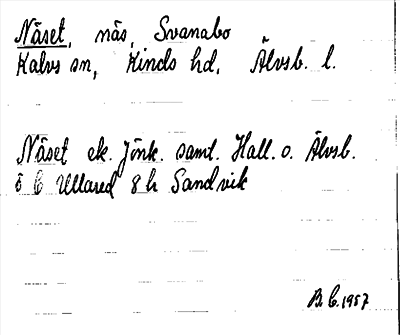 Näset, näs, Svanabo
Kalvs sn, Kinds hd, Älvsb. l.
Näset ek. Jönk. samt. Hall. o. Älvsb.
5 C Ullared 8 h Sandvik
B. C. 1957